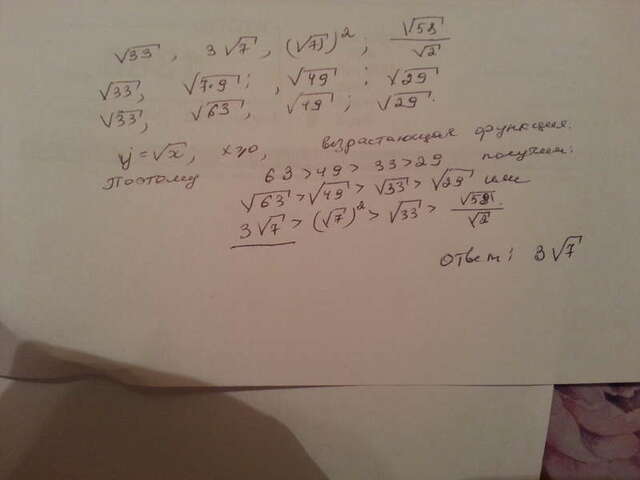 √33 , 3√7 , (√7)² ; √58/√2
√33, √7·9 ; , √49 ; √29
√33, √63 , √49 ; √29.
y = √x , x≥0, возрастающая функция.
Поэтому 63 > 49 > 33 > 29 получим:
√63 > √49 > √33 > √29 или
3√7 > (√7)² > √33 > √58/√2
Ответ: 3√7